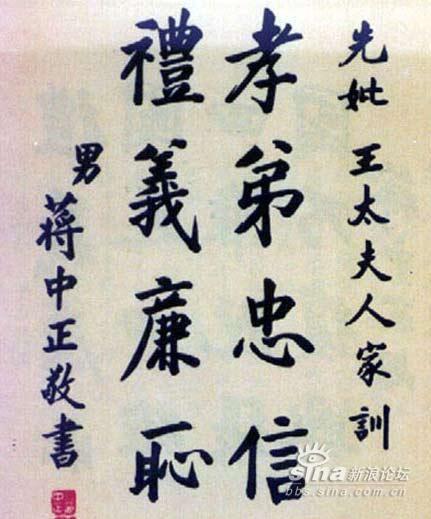 先妣王太夫人家訓
孝弟忠信
禮義廉恥
男 蔣中正敬書
sina新浪论坛
bbs.sina.com.cn